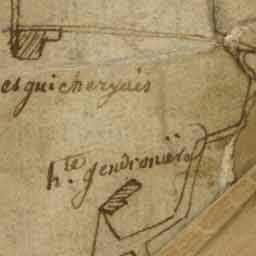 es guichergais
h.te gendronière